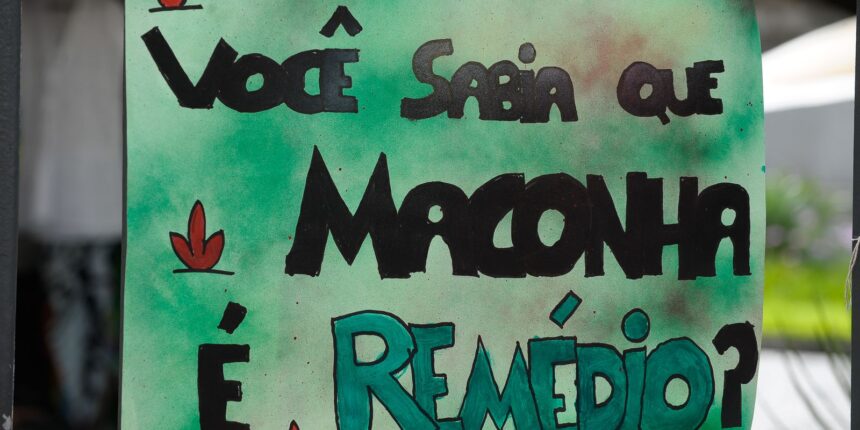 VOCÊ SABIA QUE
MACONHA
É REMÉDIO?